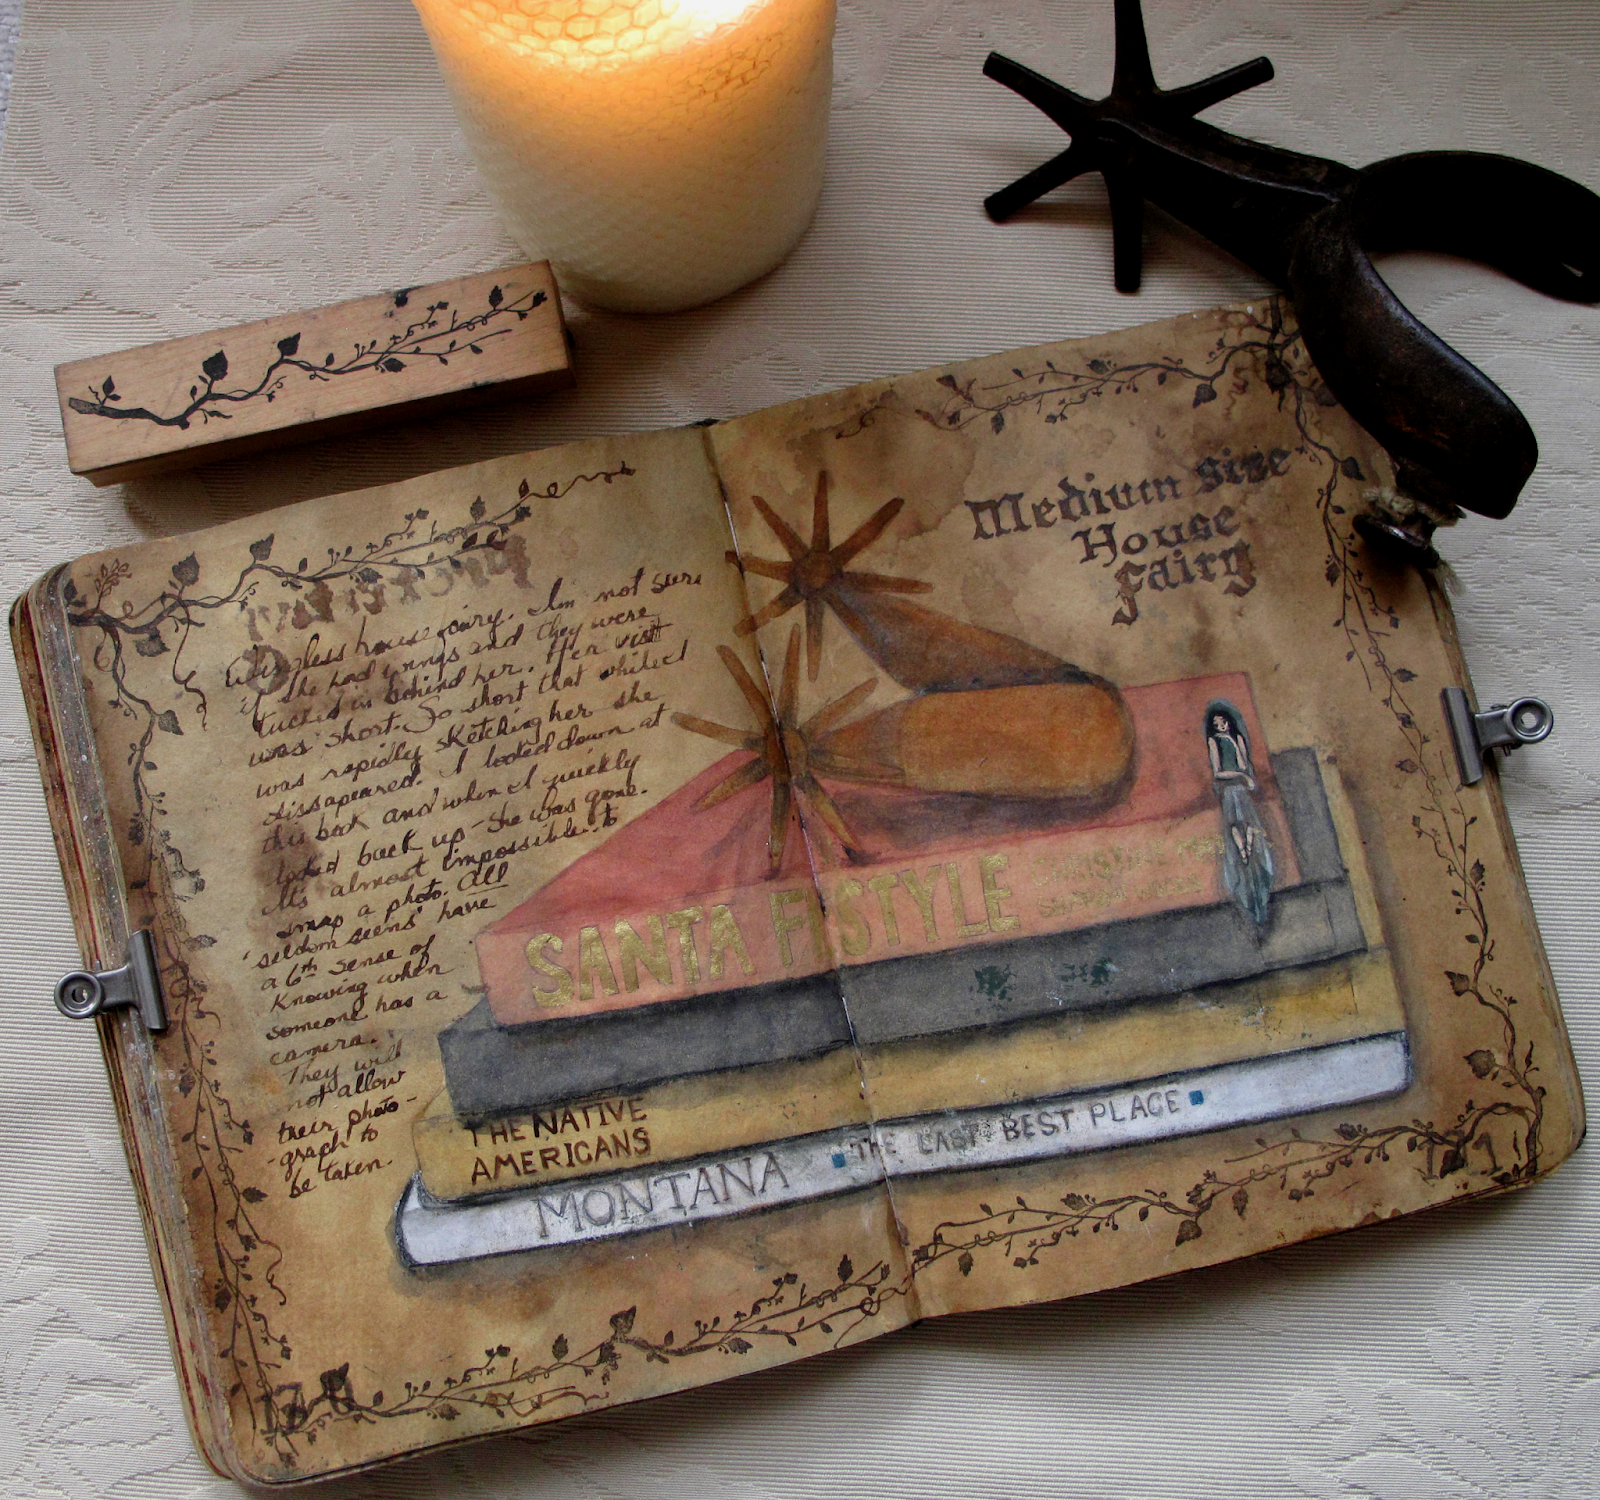 Wingless house fairy. I'm not sure
if she had wings and they were
tucked in behind her. Her visit
was short. So short that whilest
was rapidly sketching her she
dissapeared. I looked down at
this book and when I quickly
looked back up - she was gone.
It's almost impossible to
snap a photo. All
'seldom seens' have
a 6th sense of
Knowing when
someone has a
camera.
They will
not allow
their photo-
-graph to
be taken.
Medium Size
House
Fairy
SANTA FE STYLE
THE NATIVE
AMERICANS
MONTANA THE LAST BEST PLACE